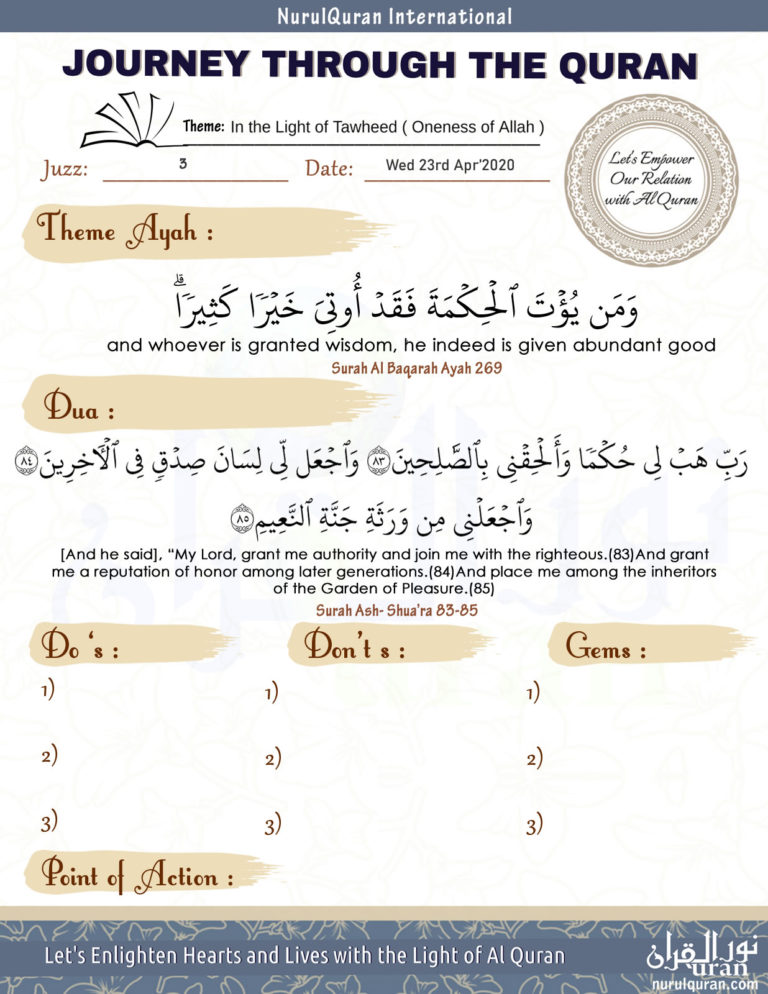 NurulQuran International
JOURNEY THROUGH THE QURAN
Theme: In the Light of Tawheed ( Oneness of Allah )
Juzz: 3 Date: Wed 23rd Apr'2020
Let's Empower
Our Relation
with Al Quran
Theme Ayah :
وَمَن يُؤْتَ ٱلْحِكْمَةَ فَقَدْ أُوتِىَ خَيْرًا كَثِيرًا ۗ
and whoever is granted wisdom, he indeed is given abundant good
Surah Al Baqarah Ayah 269
Dua :
رَبِّ هَبْ لِى حُكْمًا وَأَلْحِقْنِى بِٱلصَّـٰلِحِينَ ٨٣ وَٱجْعَل لِّى لِسَانَ صِدْقٍ فِى ٱلْـَٔاخِرِينَ ٨٤
وَٱجْعَلْنِى مِن وَرَثَةِ جَنَّةِ ٱلنَّعِيمِ ٨٥
[And he said], “My Lord, grant me authority and join me with the righteous.(83)And grant
me a reputation of honor among later generations.(84)And place me among the inheritors
of the Garden of Pleasure.(85)
Surah Ash- Shua'ra 83-85
Do 's :
1)
2)
3)
Don't s :
1)
2)
3)
Gems :
1)
2)
3)
Point of Action :
Let's Enlighten Hearts and Lives with the Light of Al Quran
نور القرآن
uran
nurulquran.com